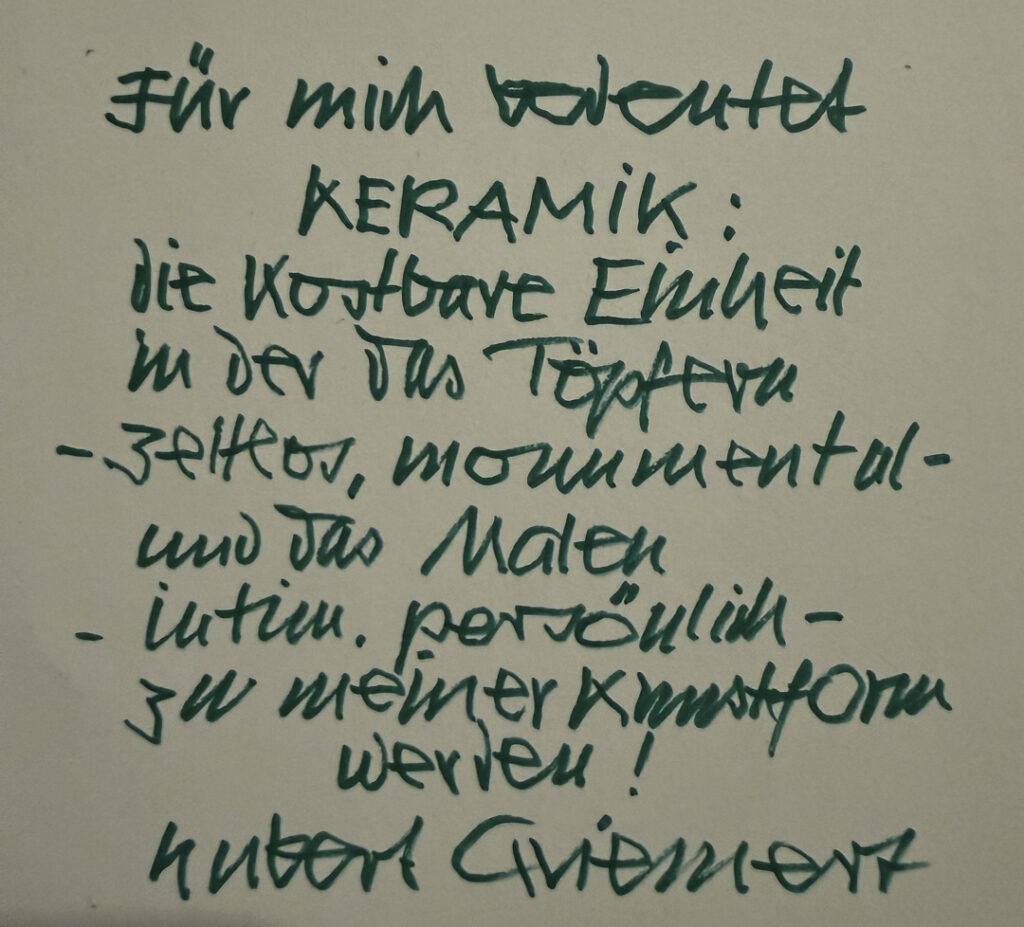 Für mich bedeutet
KERAMIK:
die Kostbare Einheit
in der das Töpfern
- zeitlos, monumental -
und das Malen
- intim. persönlich -
zu meiner Kunstform
werden!
hubert Griemert